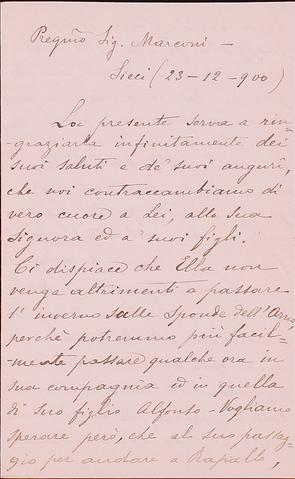 Pregmo Sig. Marconi -
Sieci (23-12-900)
La presente serva a rin-
-graziarla infinitamente dei
suoi saluti e de' suoi augurî,
che noi contraccambiamo di
vero cuore a Lei, alla sua
Signora ed a' suoi figli.
Ci dispiace che Ella non
venga altrimenti a passare
l'inverno sulle sponde dell'Arno,
perchè potremmo più facil-
-mente passare qualche ora in
sua compagnia ed in quella
di suo figlio Alfonso - Vogliamo
sperare però, che al suo passag-
gio per andare a Rapallo,